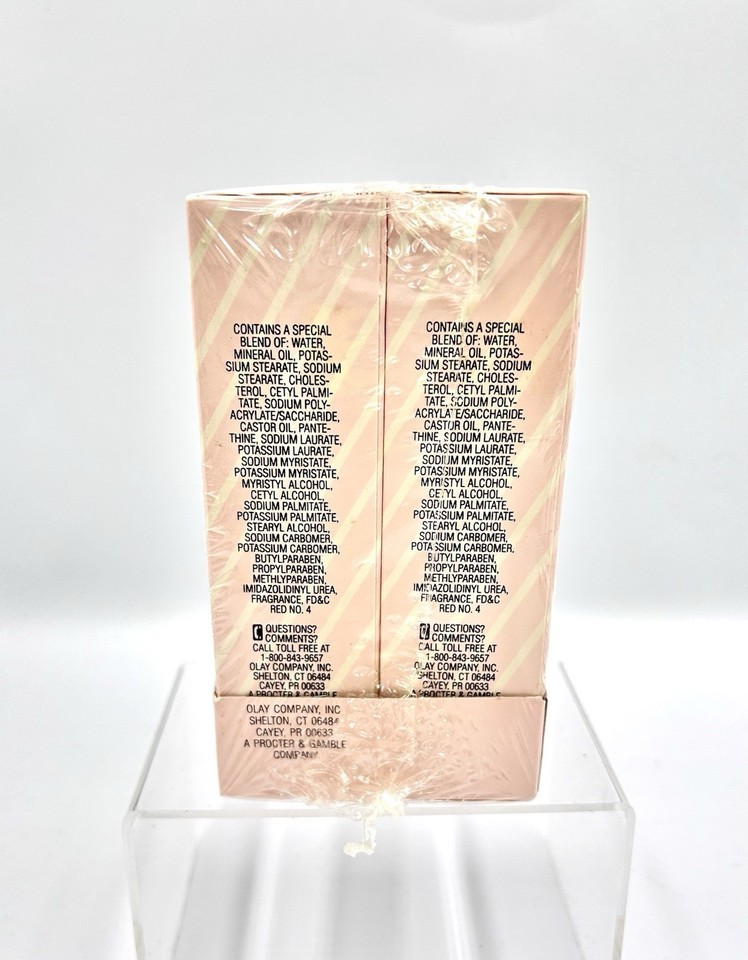 CONTAINS A SPECIAL
BLEND OF: WATER,
MINERAL OIL, POTAS-
SIUM STEARATE, SODIUM
STEARATE, CHOLES-
TEROL, CETYL PALMI-
TATE, SODIUM POLY-
ACRYLATE/SACCHARIDE,
CASTOR OIL, PANTE-
THINE, SODIUM LAURATE,
POTASSIUM LAURATE,
SODIUM MYRISTATE,
POTASSIUM MYRISTATE,
MYRISTYL ALCOHOL,
CETYL ALCOHOL,
SODIUM PALMITATE,
POTASSIUM PALMITATE,
STEARYL ALCOHOL,
SODIUM CARBOMER,
POTASSIUM CARBOMER,
BUTYLPARABEN,
PROPYLPARABEN,
METHLYPARABEN,
IMIDAZOLIDINYL UREA,
FRAGRANCE, FD&C
RED NO. 4
QUESTIONS?
COMMENTS?
CALL TOLL FREE AT
1-800-843-9657
OLAY COMPANY, INC.
SHELTON, CT 06484
CAYEY, PR 00633
A PROCTER & GAMBLE
CONTAINS A SPECIAL
BLEND OF: WATER,
MINERAL OIL, POTAS-
SIUM STEARATE, SODIUM
STEARATE, CHOLES-
TEROL, CETYL PALMI-
TATE, SODIUM POLY-
ACRYLATE/SACCHARIDE,
CASTOR OIL, PANTE-
THINE, SODIUM LAURATE,
POTASSIUM LAURATE,
SODIUM MYRISTATE,
POTASSIUM MYRISTATE,
MYRISTYL ALCOHOL,
CETYL ALCOHOL,
SODIUM PALMITATE,
POTASSIUM PALMITATE,
STEARYL ALCOHOL,
SODIUM CARBOMER,
POTASSIUM CARBOMER,
BUTYLPARABEN,
PROPYLPARABEN,
METHLYPARABEN,
IMIDAZOLIDINYL UREA,
FRAGRANCE, FD&C
RED NO. 4
QUESTIONS?
COMMENTS?
CALL TOLL FREE AT
1-800-843-9657
OLAY COMPANY, INC.
SHELTON, CT 06484
CAYEY, PR 00633
A PROCTER & GAMBLE
OLAY COMPANY, INC
SHELTON, CT 06484
CAYEY, PR 00633
A PROCTER & GAMBLE
COMPANY